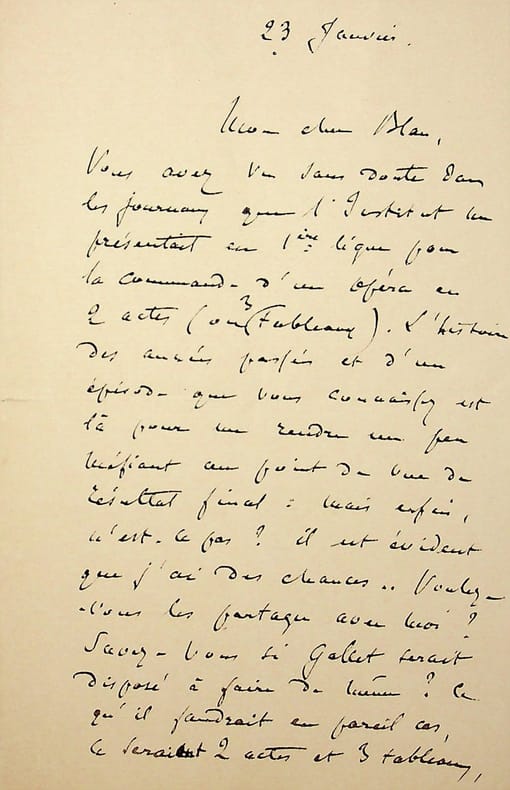 23 Janvier.
Mon cher Blau,
Vous avez vu sans doute dans
les journaux que l'Institut me
présentait en 1ère ligne pour
la commande d'un opéra en
2 actes (ou 3 tableaux). L'histoire
des années passées et d'un
épisode que vous connaissez est
là pour me rendre un peu
méfiant au point de vue du
résultat final : mais enfin,
n'est-ce pas ? il est évident
que j'ai des chances.. Voulez-
-vous les partager avec moi ?
Savez-vous si Gallet serait
disposé à faire de même ? Ce
qu'il faudrait en pareil cas,
ce serait 2 actes et 3 tableaux,